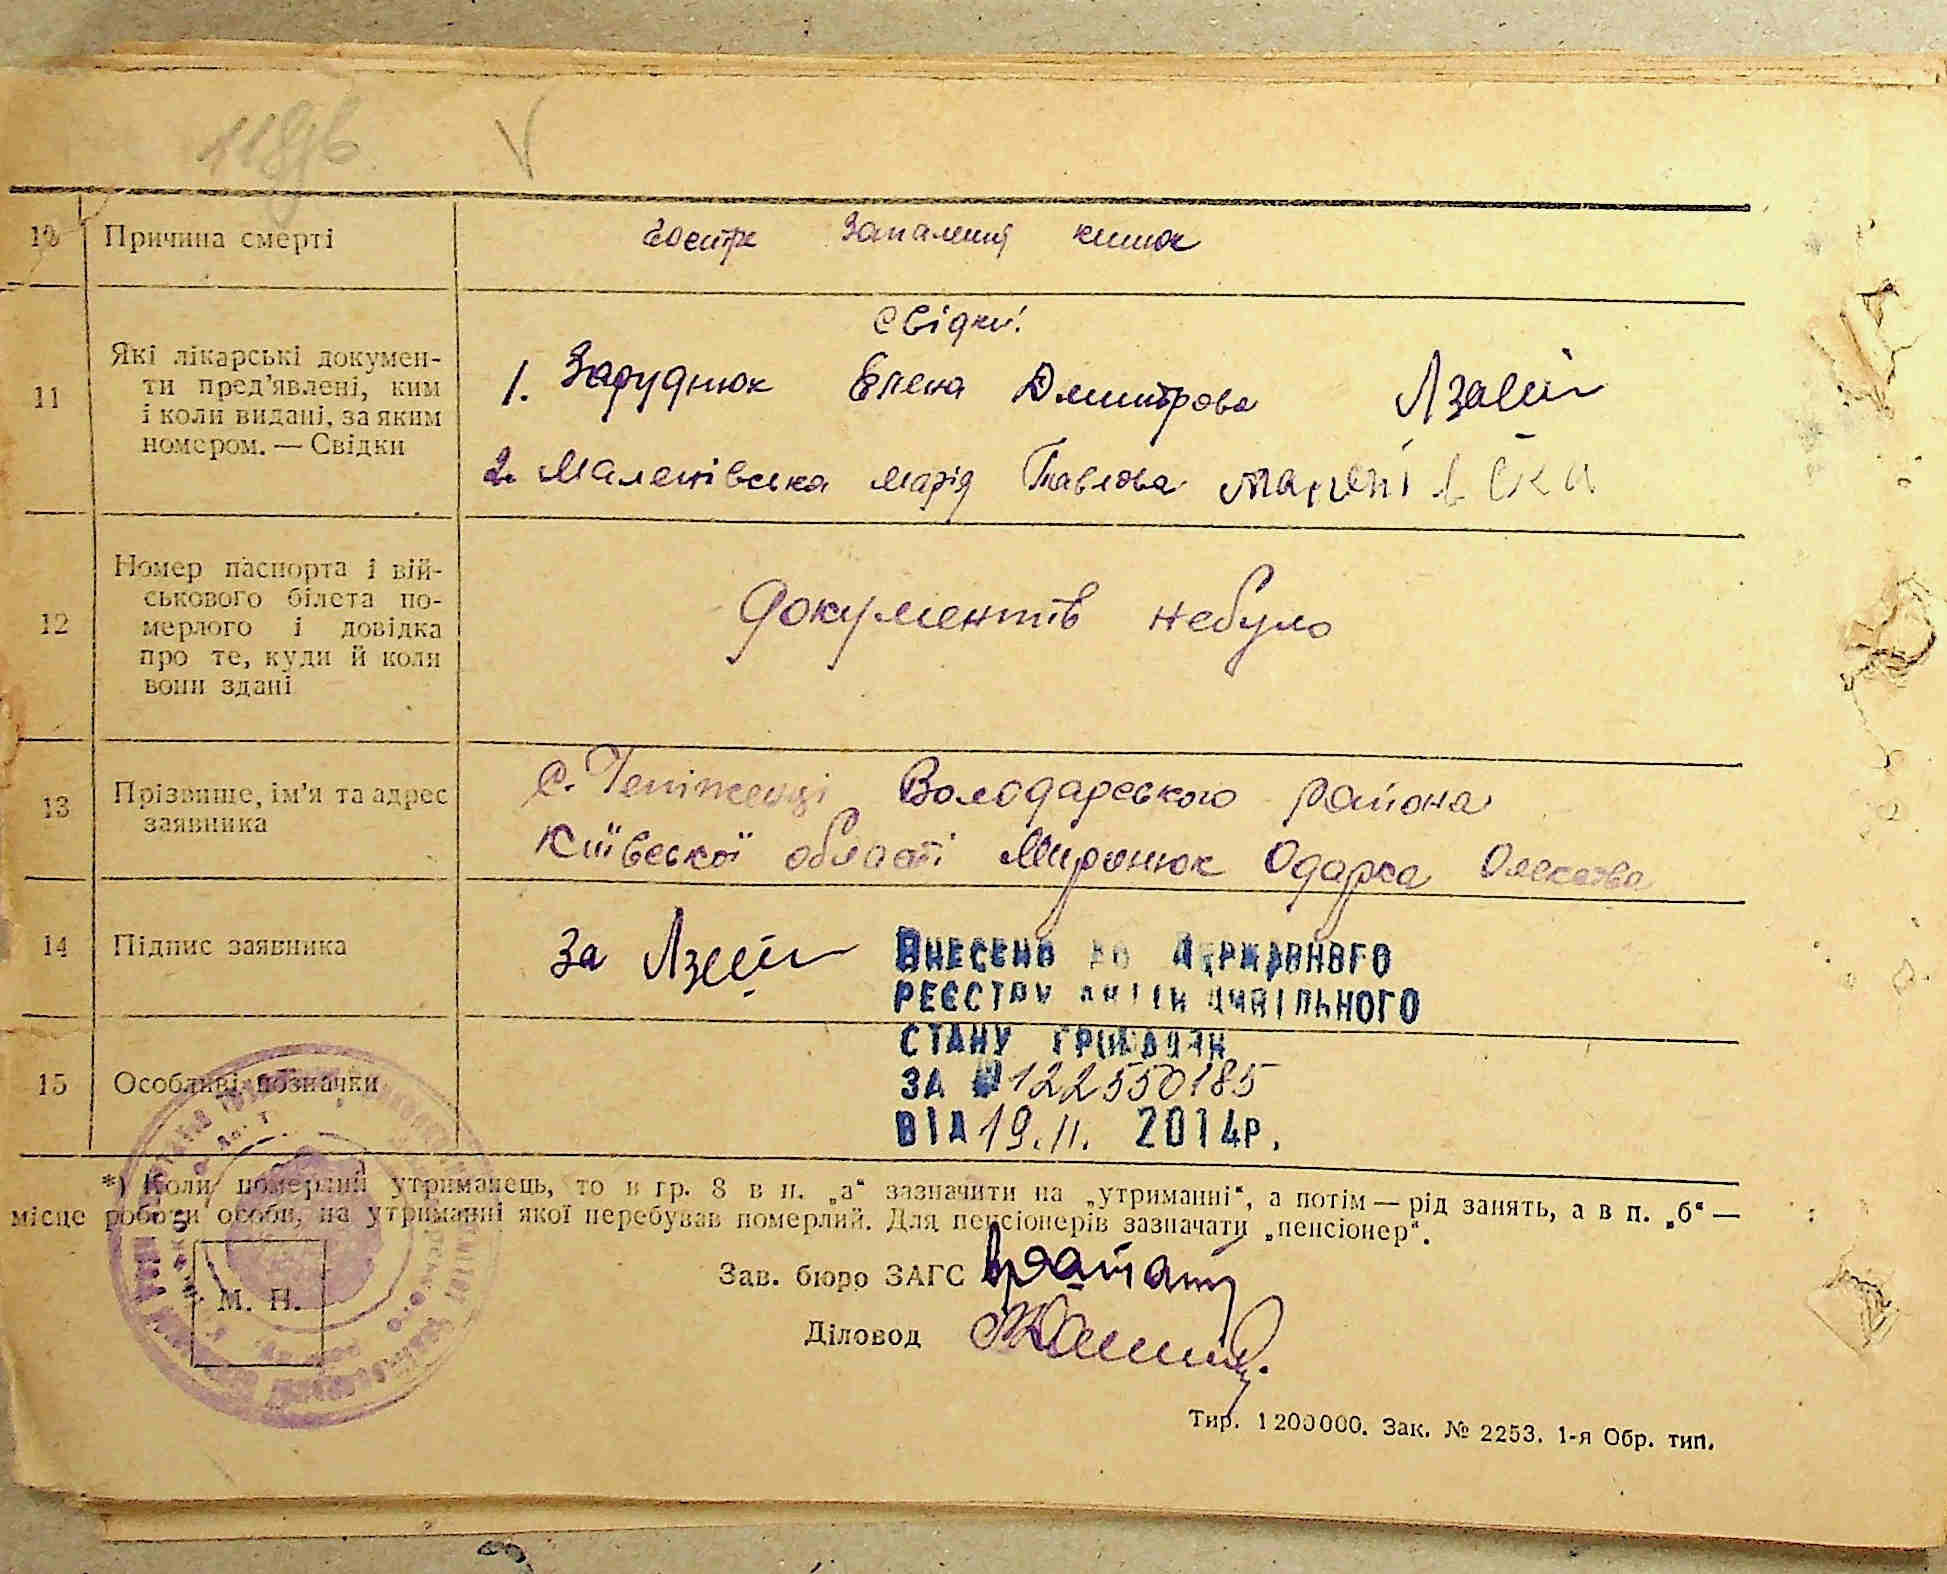 118зв V
10 Причина смерті
гостре запалення кишок
11 Які лікарські докумен-
ти пред'явлені, ким
і коли видані, за яким
номером. — Свідки
Свідки:
1. Заруднюк Елена Дмитрова
2. Маленівська Марія Павлова
12 Номер паспорта і вій-
ськового білета по-
мерлого і довідка
про те, куди й коли
вони здані
Документів небуло
13 Прізвище, ім'я та адрес
заявника
с. Володарського района
Київської області Миронюк Одарка
14 Підпис заявника
За
15 Особливі позначки
ВНЕСЕНО ДО ДЕРЖАВНОГО
РЕЄСТРУ АКТІВ ЦИВІЛЬНОГО
СТАНУ ГРОМАДЯН
ЗА № 122550185
ВІД 19.11. 2014р.
*) Коли померлий утриманець, то в гр. 8 в п. „а“ зазначити на „утриманні“, а потім — рід занять, а в п. „б“ —
місце роботи особи, на утриманні якої перебував померлий. Для пенсіонерів зазначати „пенсіонер“.
Зав. бюро ЗАГС
Діловод
М. П.
Тир. 1200000. Зак. № 2253. 1-я Обр. тип.